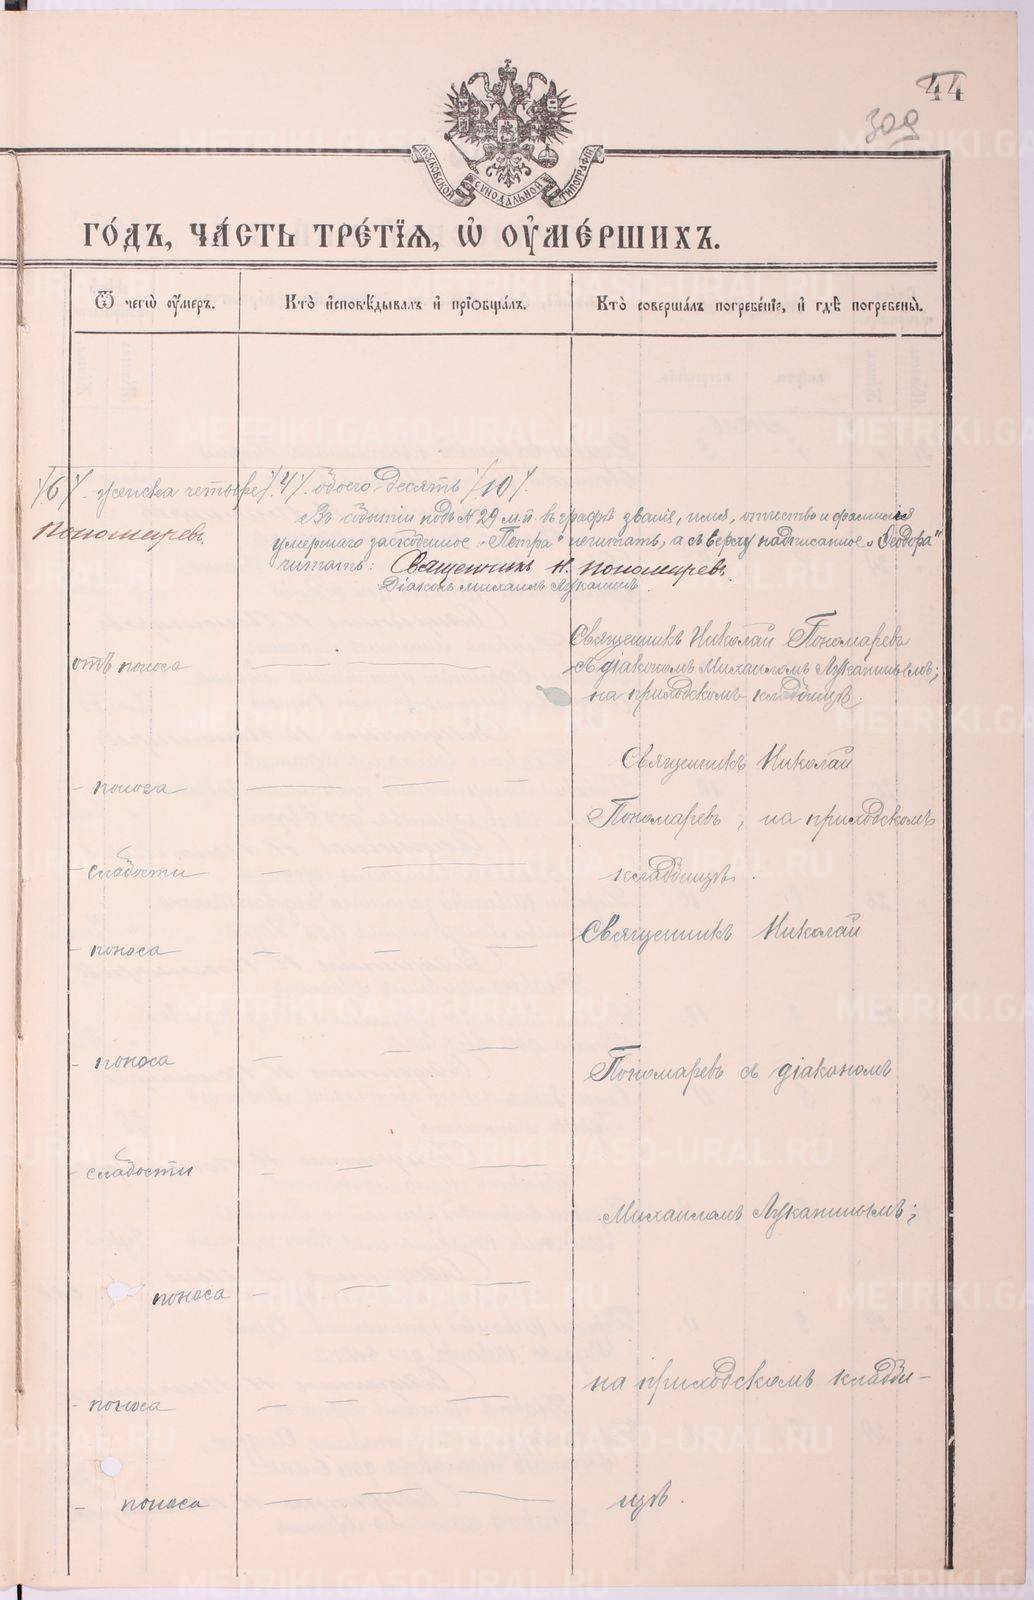 44
309
МОСКОВСКОЙ СѴНОДАЛЬНОЙ ТИПОГРАФІИ
ГО́ДЪ, ЧА́СТЬ ТРЕ́ТЇѦ, Ѡ҆ ОУ҆МЕ́РШИХЪ.
Ѿ чегѡ̀ оу҆́меръ.
Кто̀ и҆сповѣ́дывалъ и҆ прїѡбща́лъ.
Кто̀ соверша́лъ погребе́нїе, и҆ гдѣ̀ погребены̀.
/6/. женска четыре /4/. обоего десять /10/.
Пономаревъ.
Въ событіи подъ № 29 м.п. въ графѣ званіе, имя, отчество и фамилія
умершаго зачеркнутое „Петра" не читать, а сверху надписанное „Ѳеодора"
читать: Священникъ Н. Пономаревъ.
Діаконъ Михаилъ Лукапинъ.
отъ поноса
Священникъ Николай Пономаревъ
съ діакономъ Михаиломъ Лукапинымъ;
на приходскомъ кладбищѣ.
- поноса
Священникъ Николай
Пономаревъ, на приходскомъ
- слабости
кладбищѣ.
- поноса
Священникъ Николай
- поноса
Пономаревъ съ діакономъ
- слабости
Михаиломъ Лукапинымъ;
поноса
на приходскомъ кладби-
- поноса
- поноса
щѣ.
METRIKI.GASO-URAL.RU